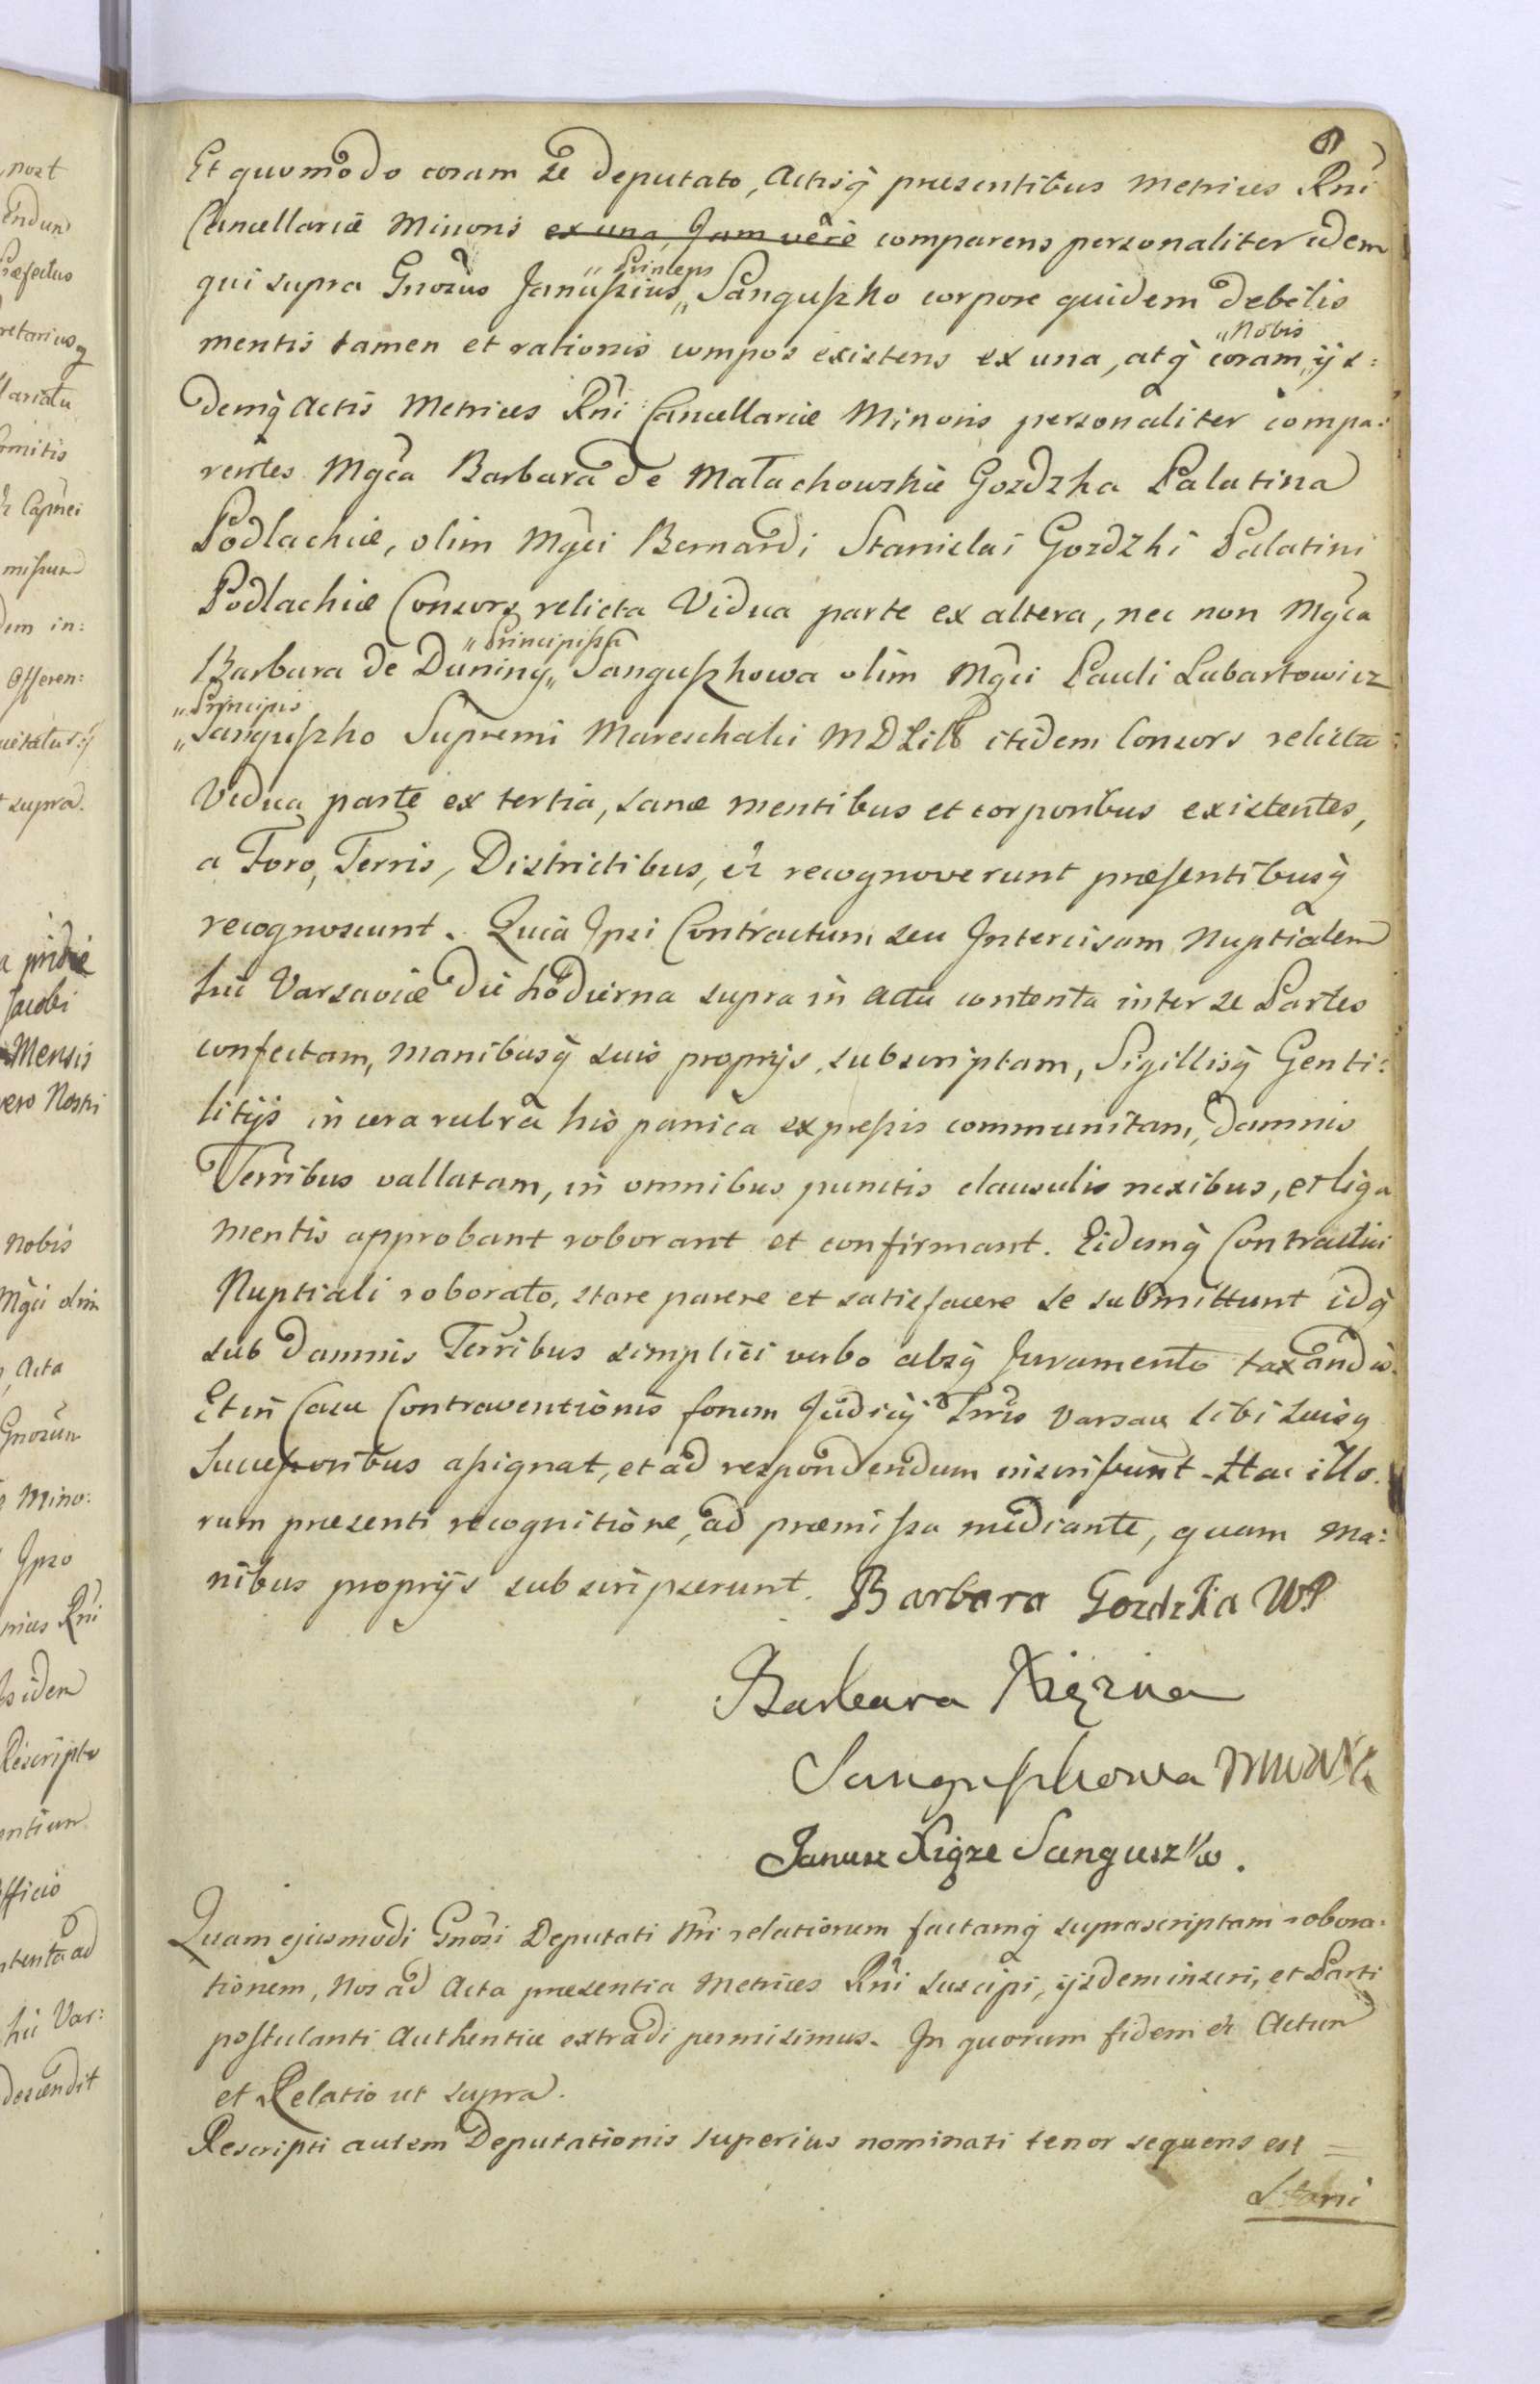 Et quomodo coram se Deputato, Actisq̃ præsentibus Metrices Rñi
Cancellariæ Minoris ex una, Jam verè comparens personaliter idem
qui supra Gnosus Januſzius „ Sanguſzko corpore quidem debilis
„ Princeps
mentis tamen et rationis compos existens ex una, atq̃ coram „ ijs:
„ Nobis
demq̃ Actis Metrices Rñi Cancellariæ Minoris personaliter compa:
rentes Mgc̃a Barbara de Małachowskie Gozdzka Palatina
Podlachiæ, olim Mgc̃i Bernardi Stanislai Gozdzki Palatini
Podlachiæ Consors relicta Vidua parte ex altera, nec non Mgc̃a
Barbara de Duniny „ Sanguſzkowa olim Mgc̃i Pauli Lubartowicz
„ Principiſſa
„ Sanguſzko Supremi Mareschalci MDLitt itidem Consors relicta
„ Principis
Vidua parte ex tertia, sanæ mentibus et corporibus existentes,
a Foro, Terris, Districtibus, &c recognoverunt præſentibusq̃
recognoscunt. Quia Ipsi Contractum seu Intercisam Nuptialem
hic Varsaviæ die hodierna supra in actu contenta inter se Partes
confectam, Manibusq̃ suis proprijs subscriptam, Sigillisq̃ Genti:
litijs in cera rubra hispanica expreſsis communitam, damnis
Terribus vallatam, in omnibus punctis clausulis nexibus, et liga
mentis approbant roborant et confirmant. Eidemq̃ Contractui
Nuptiali roborato, stare parere et satisfacere se submittunt idq̃
sub Damnis Terribus simplici verbo absq̃ Juramento taxandis.
Et in Casu Contraventionis forum Judicij Trris Varsav sibi suisq
Succeſsoribus aſsignat, et ad respondendum inscribunt. Hac illo.
rum præsenti recognitione, ad præmiſsa mediante, quam Ma:
nibus proprijs subscripserunt. Barbara Gozdzka WP
Barbara Xiężna
Sanguſzkowa
Janusz Xiąże Sanguszko.
Quam ejusmodi Gnosi Deputati Nri relationem factamq̃ suprascriptam robora:
tionem, Nos ad Acta præsentia Metrices Rñi suscipi, ijsdem inseri, et Parti
poſtulanti Authentice extradi permisimus. In quorum fidem &c Actum
et Relatio ut supra.
Rescripti autem Deputationis superius nominati tenor sequens est =